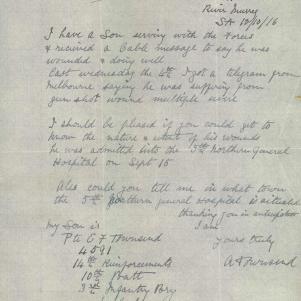 River Murray
SA 10/10/16
I have a Son serving with the Forces
& received a Cable message to say he was
wounded & doing well
Last wednesday the 4th I got a telegram from
Melbourne saying he was suffering from
gun shot wound multiple severe
I should be pleased if you could get to
know the nature & extent of his wounds
he was admitted into the 5th Northern General
Hospital on Sept 15
Also could you tell me in what town
the 5th Northern general Hospital is situated
thanking you in anticipation
I am
my Son is yours truly
Pte E F Townsend
4591 A Townsend
14th Reinforcements
10th Batt
3rd Infantry Bgy